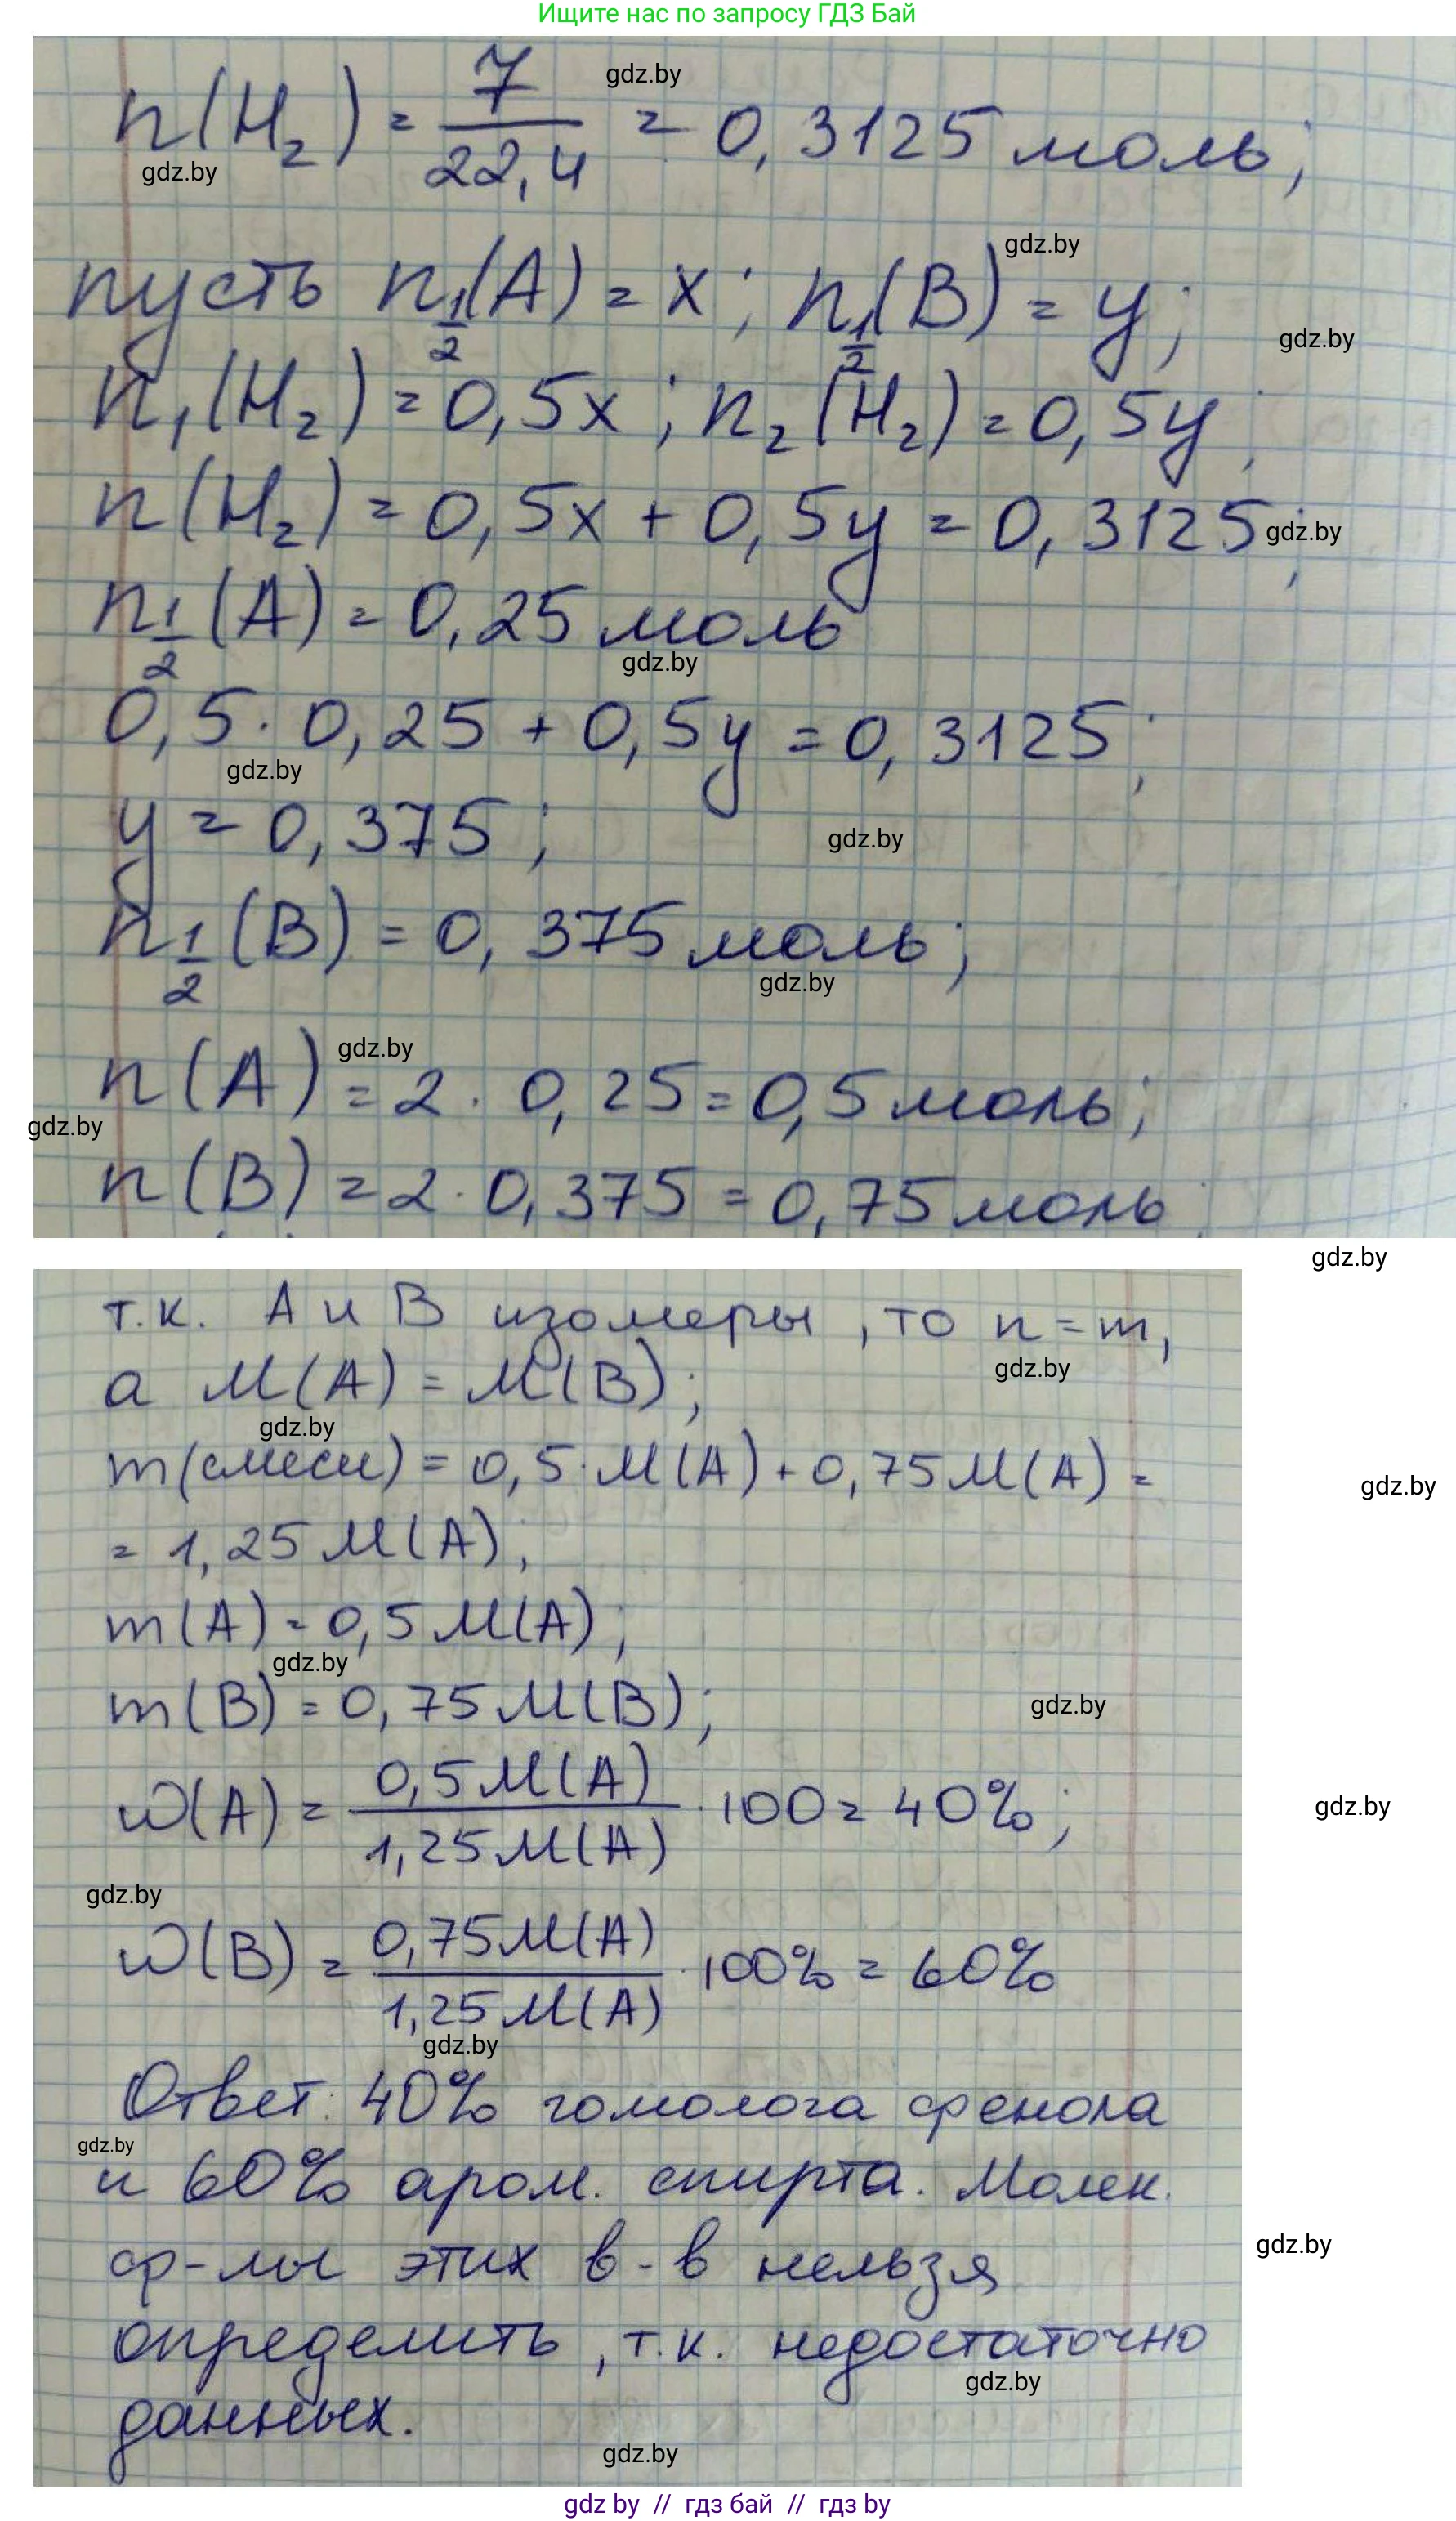 Ищите нас по запросу ГДЗ Бай
gdz.by
n(H₂) = 7/22,4 = 0,3125 моль;
gdz.by
gdz.by
пусть n½(A) = x; n½(B) = y;
gdz.by
n₁(H₂) = 0,5x; n₂(H₂) = 0,5y;
n(H₂) = 0,5x + 0,5y = 0,3125;
gdz.by
n½(A) = 0,25 моль
gdz.by
0,5 · 0,25 + 0,5y = 0,3125;
gdz.by
y = 0,375;
gdz.by
n½(B) = 0,375 моль;
gdz.by
gdz.by
n(A) = 2 · 0,25 = 0,5 моль;
gdz.by
n(B) = 2 · 0,375 = 0,75 моль;
gdz.by
т.к. A и B изомеры, то n = m,
gdz.by
а M(A) = M(B);
gdz.by
m(смеси) = 0,5 · M(A) + 0,75 M(A) =
gdz.by
= 1,25 M(A);
m(A) = 0,5 M(A);
gdz.by
m(B) = 0,75 M(B);
gdz.by
w(A) = 0,5 M(A)/1,25 M(A) · 100 = 40%;
gdz.by
gdz.by
w(B) = 0,75 M(A)/1,25 M(A) · 100% = 60%
gdz.by
Ответ: 40% гомолога фенола
gdz.by
и 60% аром. спирта. Молек.
ф-лы этих в-в нельзя
gdz.by
определить, т.к. недостаточно
gdz.by
данных.
gdz.by
gdz by // гдз бай // гдз by